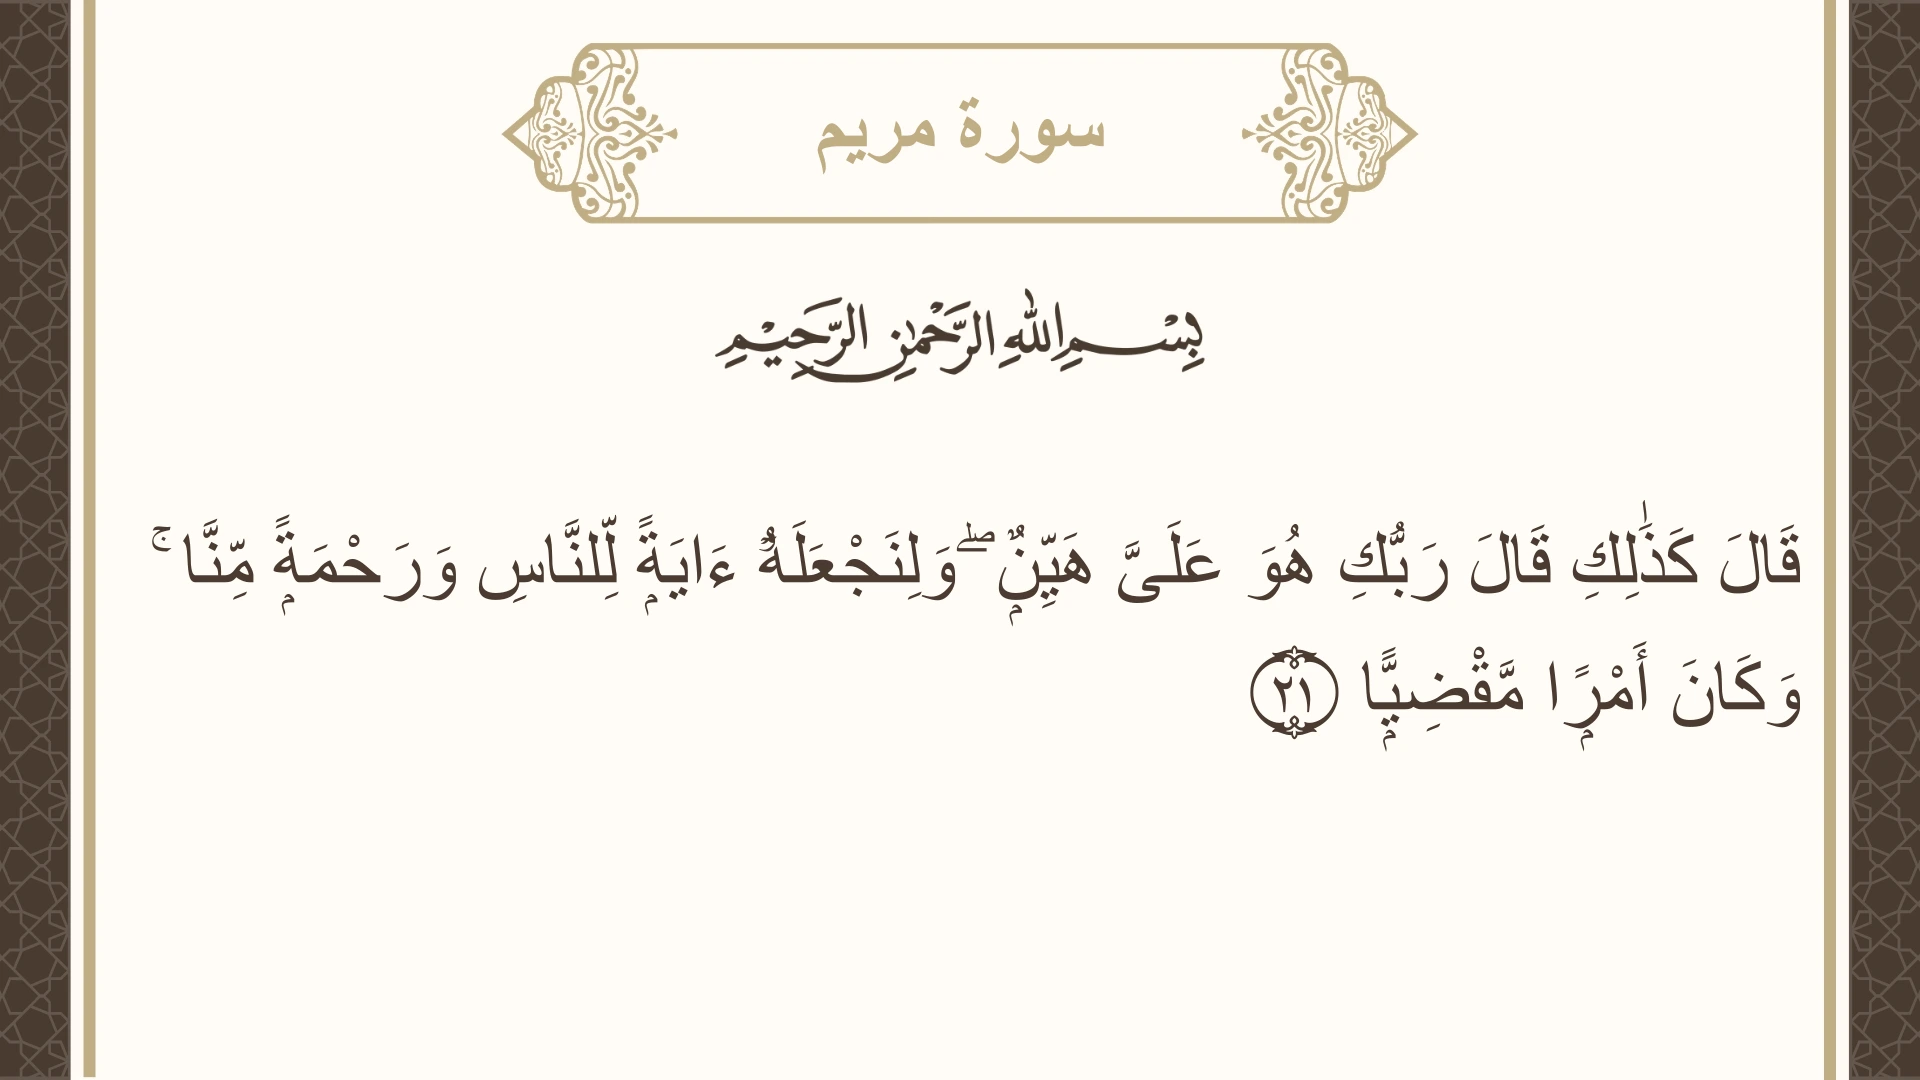 سورة مريم
بِسْمِ اللهِ الرَّحْمٰنِ الرَّحِيْمِ
قَالَ كَذَٰلِكِ قَالَ رَبُّكِ هُوَ عَلَىَّ هَيِّنٌۭ ۖ وَلِنَجْعَلَهُۥٓ ءَايَةًۭ لِّلنَّاسِ وَرَحْمَةًۭ مِّنَّا ۚ
وَكَانَ أَمْرًۭا مَّقْضِيًّۭا ٢١